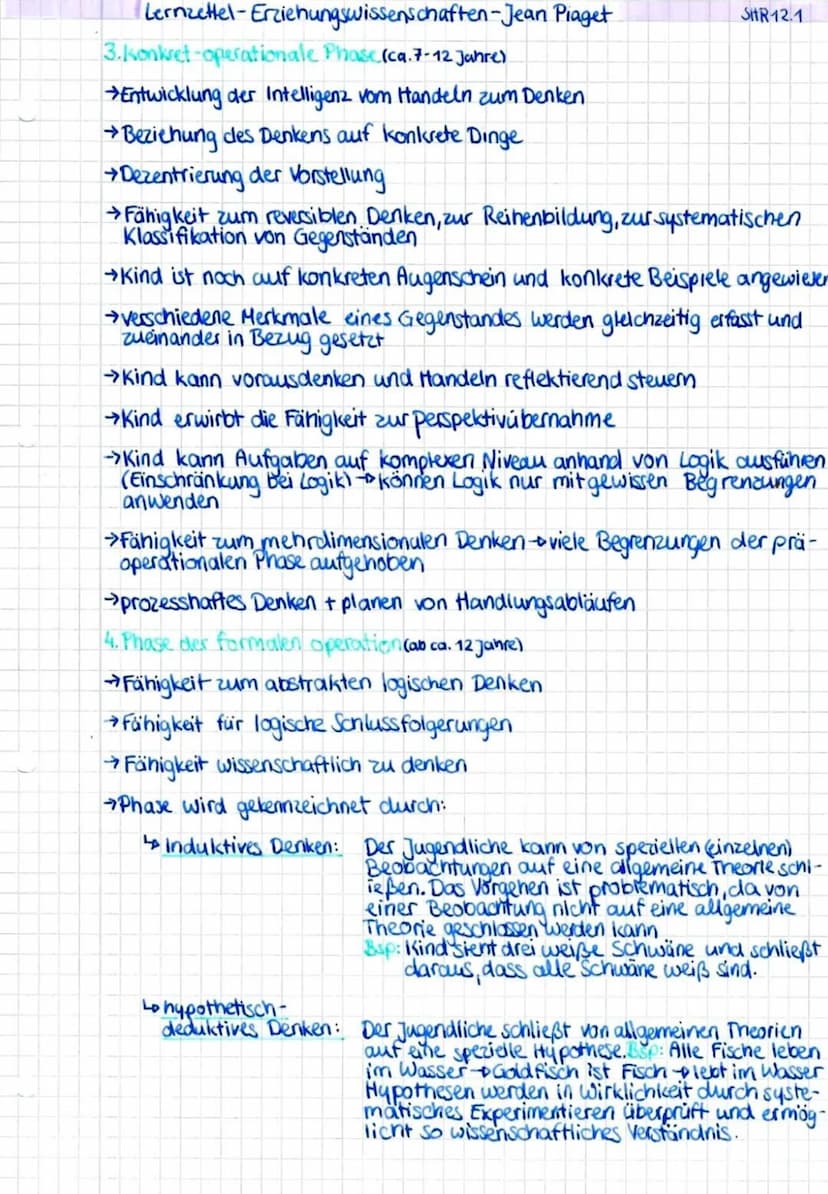 Lernzettel-Erziehungswissenschaften-Jean Piaget SHR12.1
3. Konkret-operationale Phase (ca. 7-12 Jahre)
→Entwicklung der Intelligenz vom Handeln zum Denken
→Beziehung des Denkens auf konkrete Dinge
→Dezentrierung der Vorstellung
→Fähigkeit zum reversiblen Denken, zur Reihenbildung, zur systematischen
Klassifikation von Gegenständen
→Kind ist noch auf konkreten Augenschein und konkrete Beispiele angewiesen
→verschiedene Merkmale eines Gegenstandes werden gleichzeitig erfasst und
zueinander in Bezug gesetzt
→Kind kann vorausdenken und Handeln reflektierend steuern
→Kind erwirbt die Fähigkeit zur perspektivübernahme
→Kind kann Aufgaben auf komplexen Niveau anhand von Logik ausführen
(Einschränkung bei Logik)→können Logik nur mit gewissen Begrenzungen
anwenden
→Fähigkeit zum mehrdimensionalen Denken→viele Begrenzungen der prä-
operationalen Phase aufgehoben
→prozesshaftes Denken + planen von Handlungsabläufen
4. Phase der formalen operation (ab ca. 12 Jahre)
→Fähigkeit zum abstrakten logischen Denken
→Fähigkeit für logische Schlussfolgerungen
→Fähigkeit wissenschaftlich zu denken
→Phase wird gekennzeichnet durch:
↳ Induktives Denken: Der Jugendliche kann von speziellen (einzelnen)
Beobachtungen auf eine allgemeine Theorie schl-
ießen. Das Vorgehen ist problematisch, da von
einer Beobachtung nicht auf eine allgemeine
Theorie geschlossen werden kann
Bsp: Kind sieht drei weiße Schwäne und schließt
daraus, dass alle Schwäne weiß sind.
↳ hypothetisch-
deduktives Denken: Der Jugendliche schließt von allgemeinen Theorien
auf eine spezielle Hypothese. Bsp: Alle Fische leben
im Wasser→Goldfisch ist Fisch→lebt im Wasser
Hypothesen werden in Wirklichkeit durch syste-
matisches Experimentieren überprüft und ermög-
licht so wissenschaftliches Verständnis.